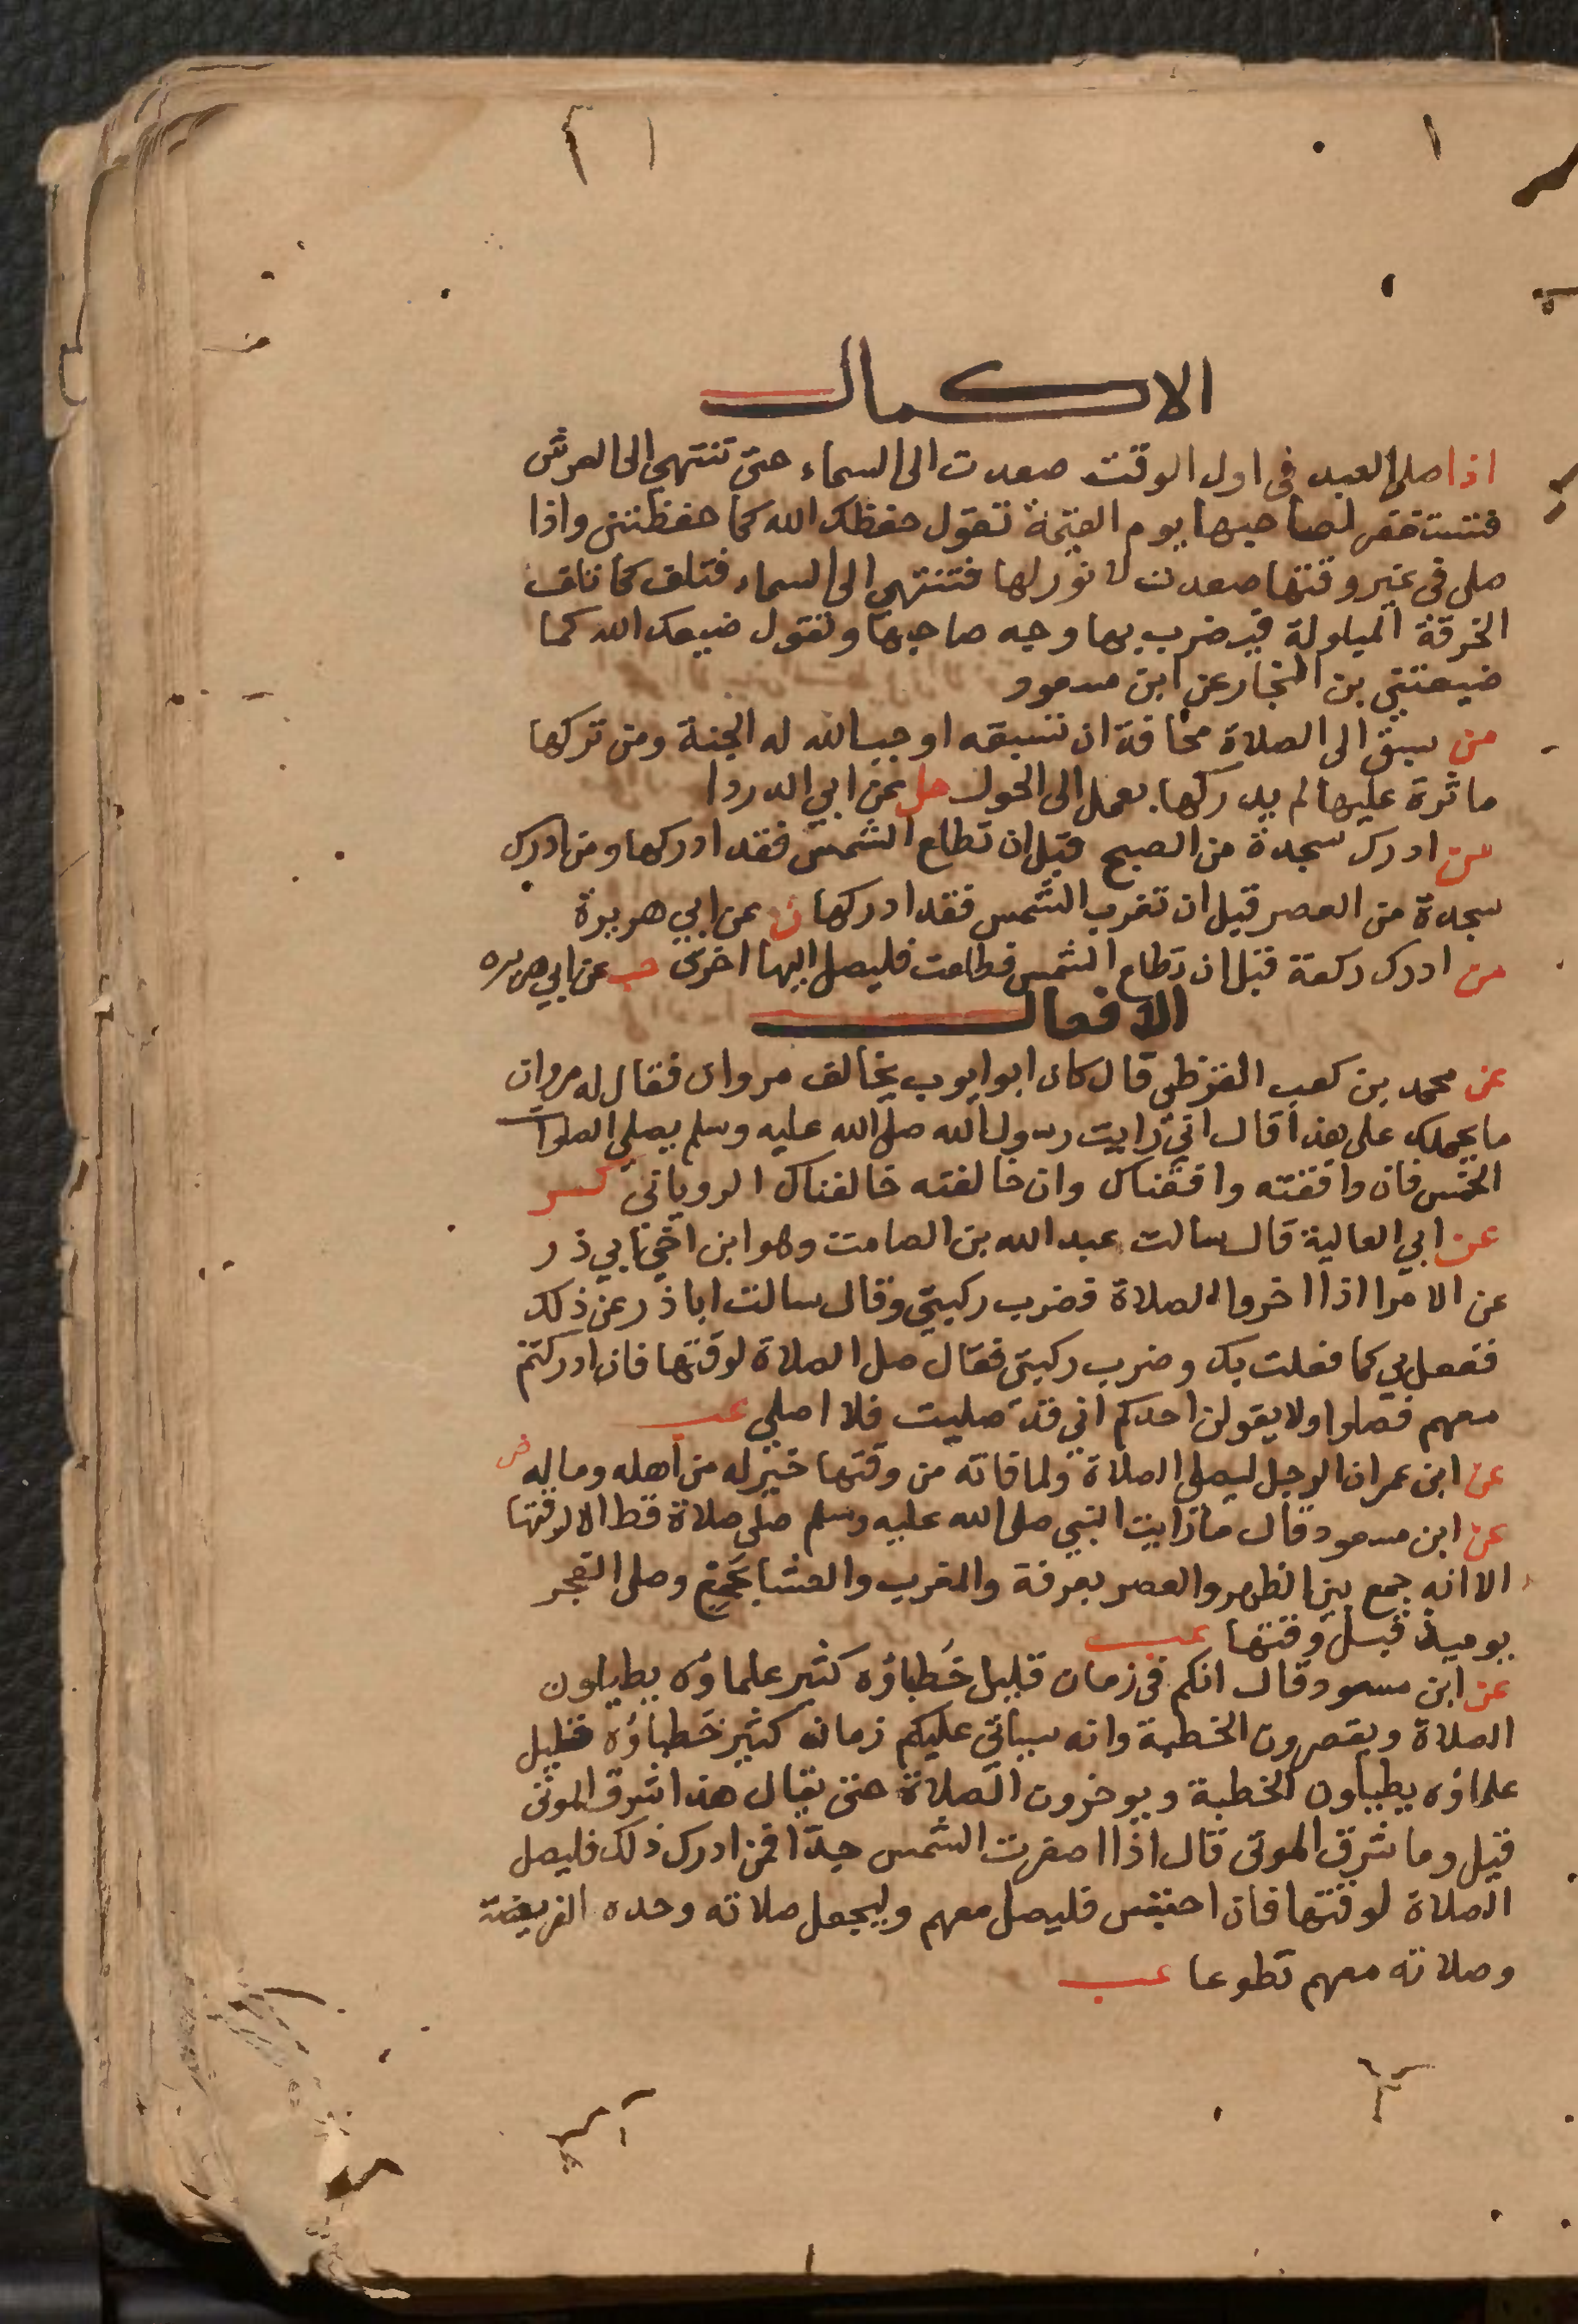 الاكمال
اذا صلى العبد فى اول الوقت صعدت الى السماء حتى تنتهى الى العرش
فتستغفر لصاحبها يوم القيمة تقول حفظك الله كما حفظتنى واذا
صلى فى غير وقتها صعدت لا نور لها فتنتهى الى السماء فتلف كما تلف
الخرقة المبلولة فيضرب بها وجه صاحبها وتقول ضيعك الله كما
ضيعتنى بن النجار عن ابن مسعود
من سبق الى الصلاة مخافة ان تسبقه اوجب الله له الجنة ومن تركها
ماثرة عليها لم يدركها بعمل الى الحول حل عن ابي الدردا
من ادرك سجدة من الصبح قبل ان تطلع الشمس فقد ادركها ومن ادرك
سجدة من العصر قبل ان تغرب الشمس فقد ادركها ن عن ابي هريرة
من ادرك ركعة قبل ان تطلع الشمس فطلعت فليصل اليها اخرى حب عن ابي هريره
الافعال
عن محمد بن كعب القرظى قال كان ابو ايوب يخالف مروان فقال له مروان
ما يحملك على هذا قال اني رايت رسول الله صلى الله عليه وسلم يصلى الصلوات
الخمس فان وافقته وافقناك وان خالفته خالفناك الروياني كر
عن ابي العالية قال سالت عبد الله بن الصامت وهو ابن اخي ابي ذر
عن الامرا اذا اخروا الصلاة فضرب ركبتي وقال سالت ابا ذر عن ذلك
ففعل بي كما فعلت بك وضرب ركبتى فقال صل الصلاة لوقتها فان ادركتم
معهم فصلوا ولا يقولن احدكم اني قد صليت فلا اصلي عب
عن ابن عمر ان الرجل ليصلى الصلاة ولما فاته من وقتها خير له من اهله وماله ض
عن ابن مسعود قال ما رايت النبي صلى الله عليه وسلم صلى صلاة قط الا لوقتها
الا انه جمع بين الظهر والعصر بعرفة والمغرب والعشا بجمع وصلى الفجر
يوميذ قبل وقتها عب
عن ابن مسعود قال انكم فى زمان قليل خُطباؤه كثير علماؤه يطيلون
الصلاة ويقصرون الخطبة وانه سياتي عليكم زمان كثير خطباؤه قليل
علماؤه يطيلون الخطبة ويوخرون الصلاة حتى يقال هذا شرق الموتى
قيل وما شرق الموتى قال اذا اصفرت الشمس جدا فمن ادرك ذلك فليصل
الصلاة لوقتها فان احتبس فليصل معهم وليجعل صلاته وحده الفريضة
وصلاته معهم تطوعا عب